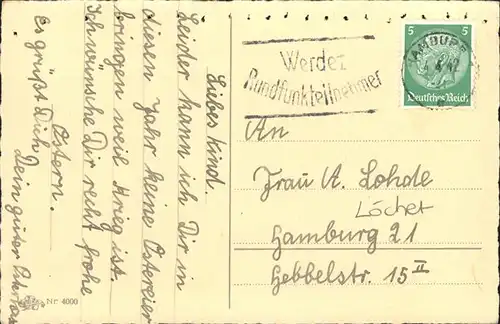 Liebes Kind.
Leider kann ich Dir in
diesen Jahr keine Ostereier
bringen weil Krieg ist.
Ich wünsche Dir recht frohe
Ostern.
Es grüßt Dich
Dein guter
Nr. 4000
Werdet
Rundfunkteilnehmer
5 5
Deutsches Reich
An
Frau A. Lohde
Löcher
Hamburg 21
Hebbelstr. 15 II